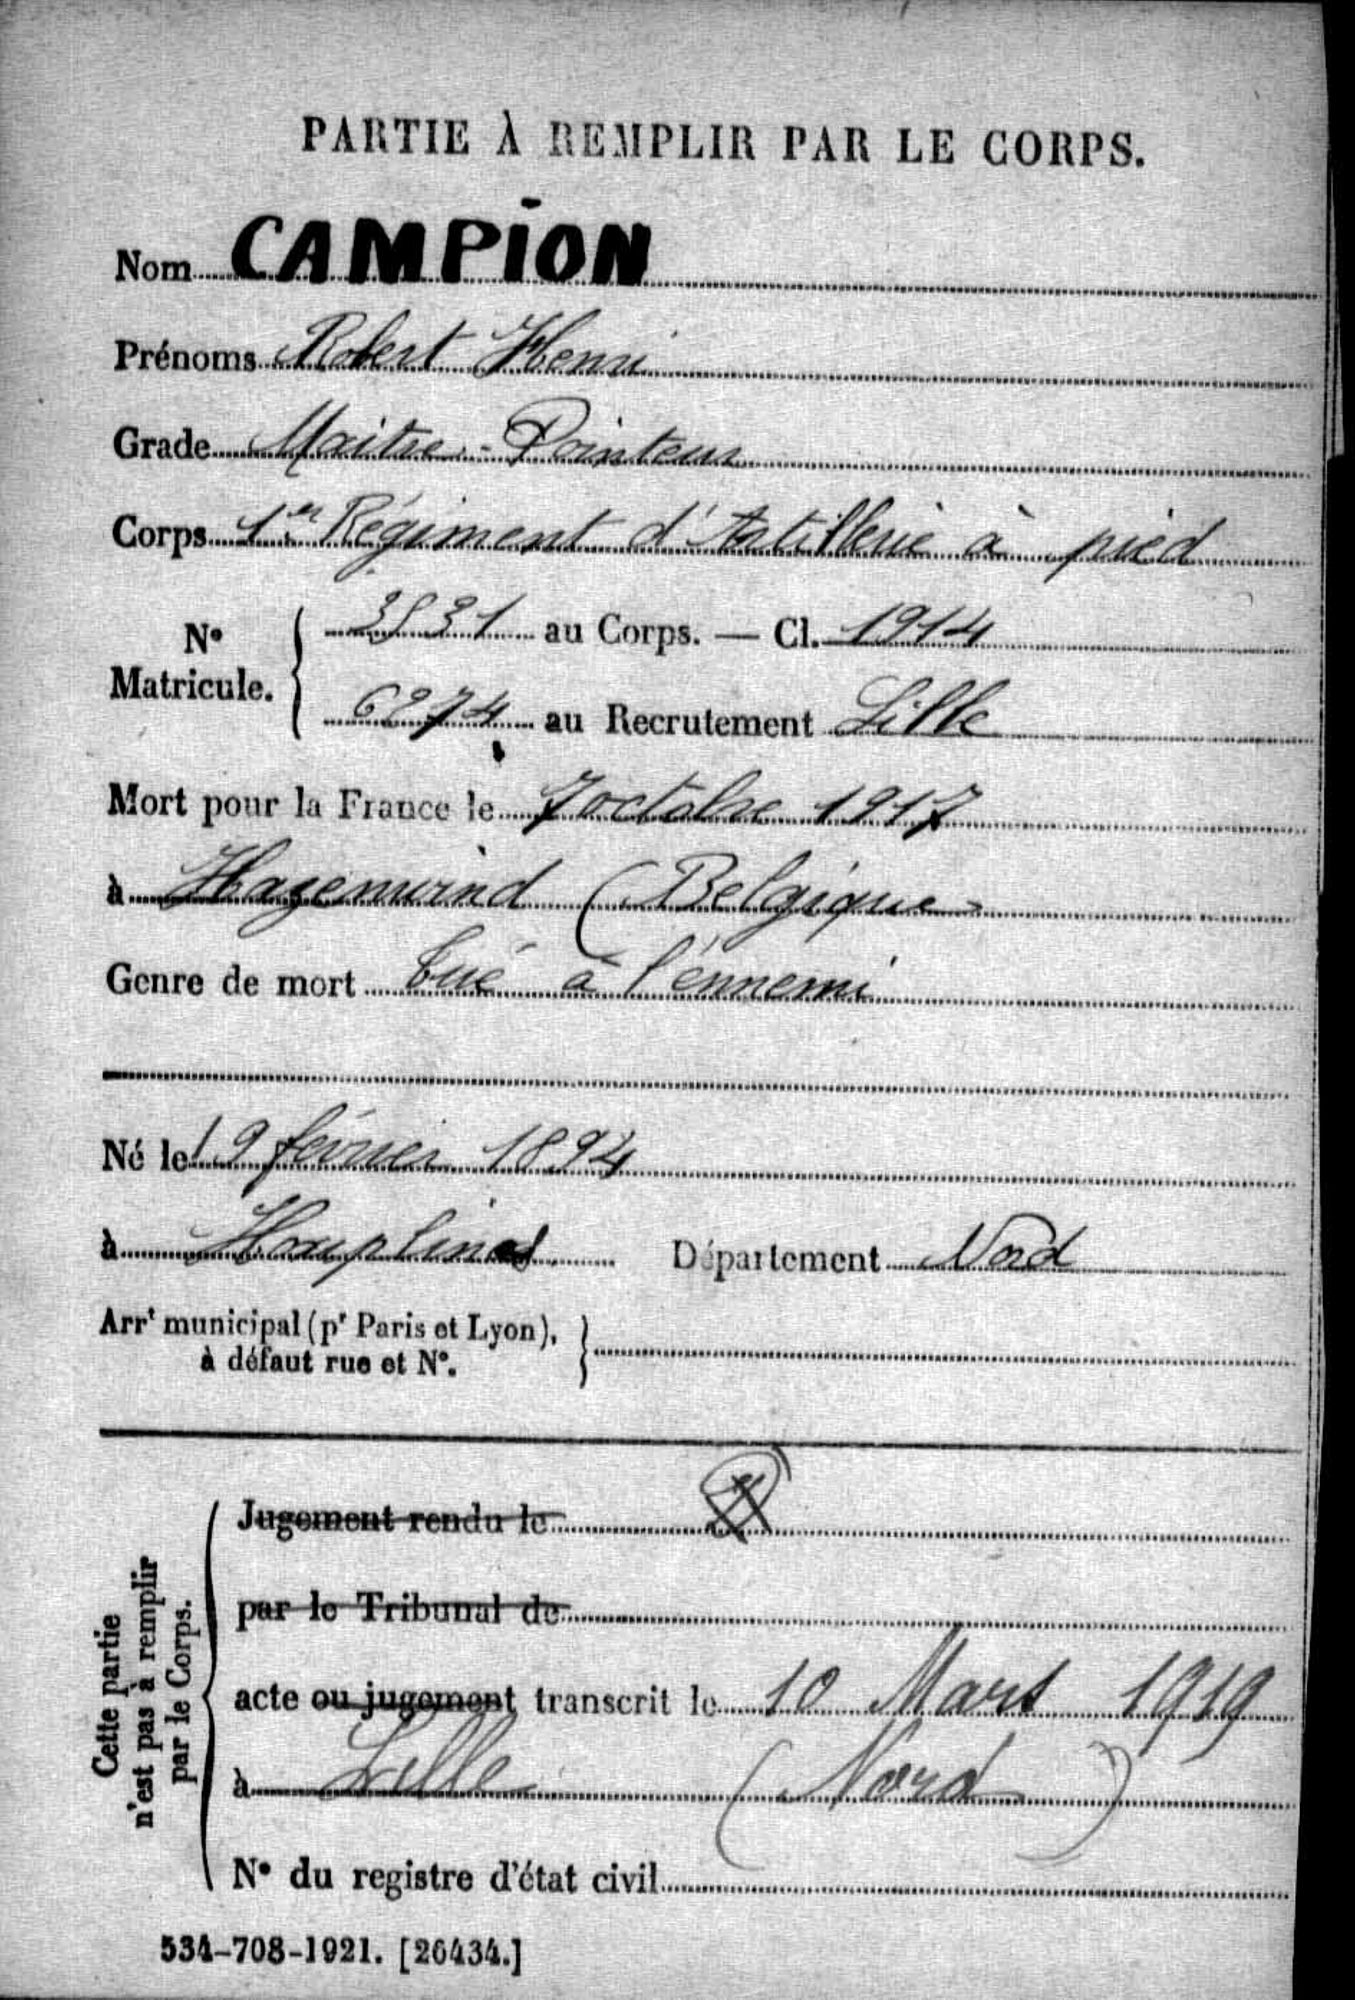 PARTIE À REMPLIR PAR LE CORPS.
Nom CAMPION
Prénoms Robert Henri
Grade Maitre-Pointeur
Corps 1er Régiment d'Artillerie à pied
N° Matricule. { 3831 au Corps. — Cl. 1914
6274 au Recrutement Lille
Mort pour la France le 7 octobre 1917
à Hazenwind (Belgique
Genre de mort tué à l'ennemi
Né le 19 février 1894
à Houplines Département Nord
Arrt municipal (pr Paris et Lyon),
à défaut rue et N°. }
Cette partie
n'est pas à remplir
par le Corps.
Jugement rendu le
par le Tribunal de
acte ou jugement transcrit le 10 Mars 1919
à Lille (Nord)
N° du registre d'état civil
534-708-1921. [26434.]